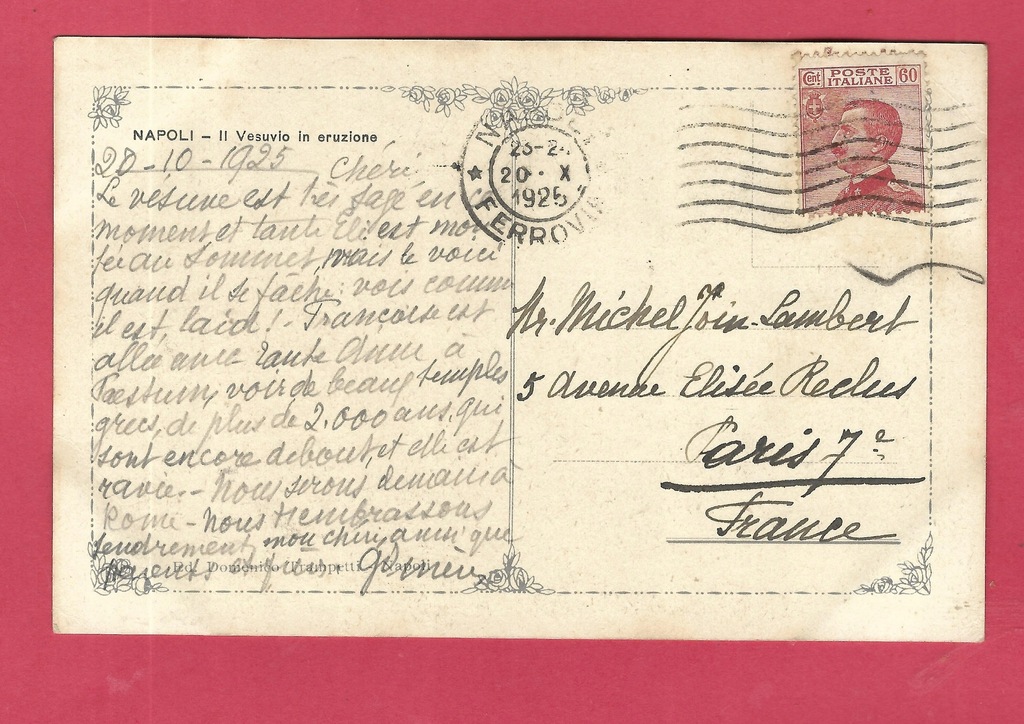 NAPOLI – Il Vesuvio in eruzione
20-10-1925 Chéri,
Le vesuve est très sage en ce
moment et tante Eli est
au sommet, mais le voici
quand il se fâche: vois comm
il est laid! - Françoise est
allée avec tante Anne à
Paestum, voir de beaux temples
grecs, de plus de 2.000 ans, qui
sont encore debout, et elle est
ravie. - Nous serons demain à
Rome - Nous t'embrassons
tendrement, mon chéri, ainsi que
Ed. Domenico Trampetti Napoli
NAPOLI
FERROVIA
23-24
20 · X
1925
Cent POSTE ITALIANE 60
Mr. Michel Join-Lambert
5 avenue Elisée Reclus
Paris 7e
France